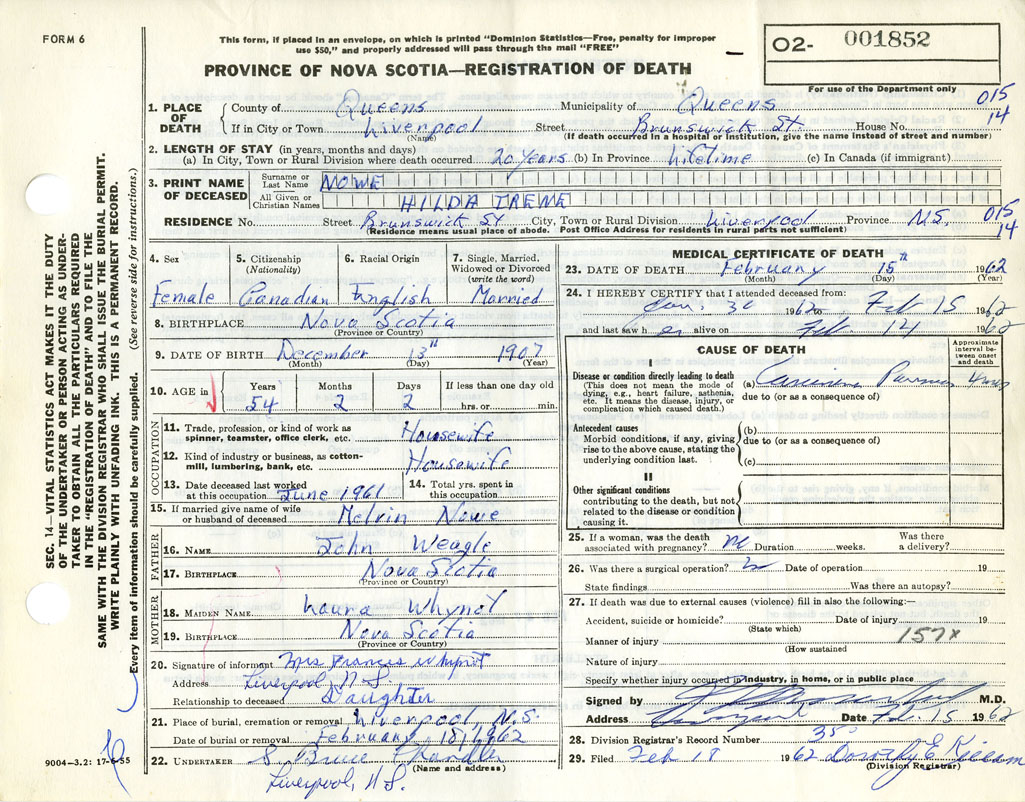 FORM 6
This form, if placed in an envelope, on which is printed "Dominion Statistics—Free, penalty for improper
use $50," and properly addressed will pass through the mail "FREE"
PROVINCE OF NOVA SCOTIA—REGISTRATION OF DEATH
02- 001852
For use of the Department only
015
14
1. PLACE OF DEATH
County of Queens Municipality of Queens
If in City or Town Liverpool Street Brunswick St House No.
(Name) (If death occurred in a hospital or institution, give the name instead of street and number)
2. LENGTH OF STAY (in years, months and days)
(a) In City, Town or Rural Division where death occurred 20 years (b) In Province Lifetime (c) In Canada (if immigrant)
3. PRINT NAME OF DECEASED
Surname or Last Name NOWE
All Given or Christian Names HILDA IRENE
RESIDENCE No. Street Brunswick St City, Town or Rural Division Liverpool Province N.S.
(Residence means usual place of abode. Post Office Address for residents in rural parts not sufficient)
015
14
4. Sex
Female
5. Citizenship
(Nationality)
Canadian
6. Racial Origin
English
7. Single, Married,
Widowed or Divorced
(write the word)
Married
8. BIRTHPLACE Nova Scotia
(Province or Country)
9. DATE OF BIRTH December 13th 1907
(Month) (Day) (Year)
10. AGE in
Years Months Days If less than one day old
54 2 2 hrs. or min.
OCCUPATION
11. Trade, profession, or kind of work as
spinner, teamster, office clerk, etc. Housewife
12. Kind of industry or business, as cotton-
mill, lumbering, bank, etc. Housewife
13. Date deceased last worked
at this occupation June 1961
14. Total yrs. spent in
this occupation
15. If married give name of wife
or husband of deceased Melvin Nowe
FATHER
16. NAME John Weagle
17. BIRTHPLACE Nova Scotia
(Province or Country)
MOTHER
18. MAIDEN NAME Laura Whynot
19. BIRTHPLACE Nova Scotia
(Province or Country)
20. Signature of informant Mrs Frances Whynot
Address Liverpool N.S.
Relationship to deceased Daughter
21. Place of burial, cremation or removal Liverpool, N.S.
Date of burial or removal February 18, 1962
22. UNDERTAKER S. Bruce Chandler
(Name and address)
Liverpool, N.S.
MEDICAL CERTIFICATE OF DEATH
23. DATE OF DEATH February 15th 1962
(Month) (Day) (Year)
24. I HEREBY CERTIFY that I attended deceased from:
Jan. 30 1962 to Feb 15 1962
and last saw her alive on Feb 14 1962
CAUSE OF DEATH
Approximate
interval be-
tween onset
and death
I
Disease or condition directly leading to death
(This does not mean the mode of
dying, e.g., heart failure, asthenia,
etc. It means the disease, injury, or
complication which caused death.)
(a)
due to (or as a consequence of)
Antecedent causes
Morbid conditions, if any, giving
rise to the above cause, stating the
underlying condition last.
(b)
due to (or as a consequence of)
(c)
II
Other significant conditions
contributing to the death, but not
related to the disease or condition
causing it.
25. If a woman, was the death
associated with pregnancy? no Duration weeks. Was there
a delivery?
26. Was there a surgical operation? Date of operation 19
State findings Was there an autopsy?
27. If death was due to external causes (violence) fill in also the following:—
Accident, suicide or homicide? Date of injury 19
(State which)
Manner of injury 157X
(How sustained
Nature of injury
Specify whether injury occurred in industry, in home, or in public place
Signed by M.D.
Address Liverpool Date Feb. 15 1962
28. Division Registrar's Record Number 35
29. Filed Feb 18 1962 Dorothy E
(Division Registrar)
SEC. 14—VITAL STATISTICS ACT MAKES IT THE DUTY
OF THE UNDERTAKER OR PERSON ACTING AS UNDER-
TAKER TO OBTAIN ALL THE PARTICULARS REQUIRED
IN THE "REGISTRATION OF DEATH" AND TO FILE THE
SAME WITH THE DIVISION REGISTRAR WHO SHALL ISSUE THE BURIAL PERMIT.
WRITE PLAINLY WITH UNFADING INK. THIS IS A PERMANENT RECORD.
Every item of information should be carefully supplied. (See reverse side for instructions.)
9004—3.2: 17-6-55